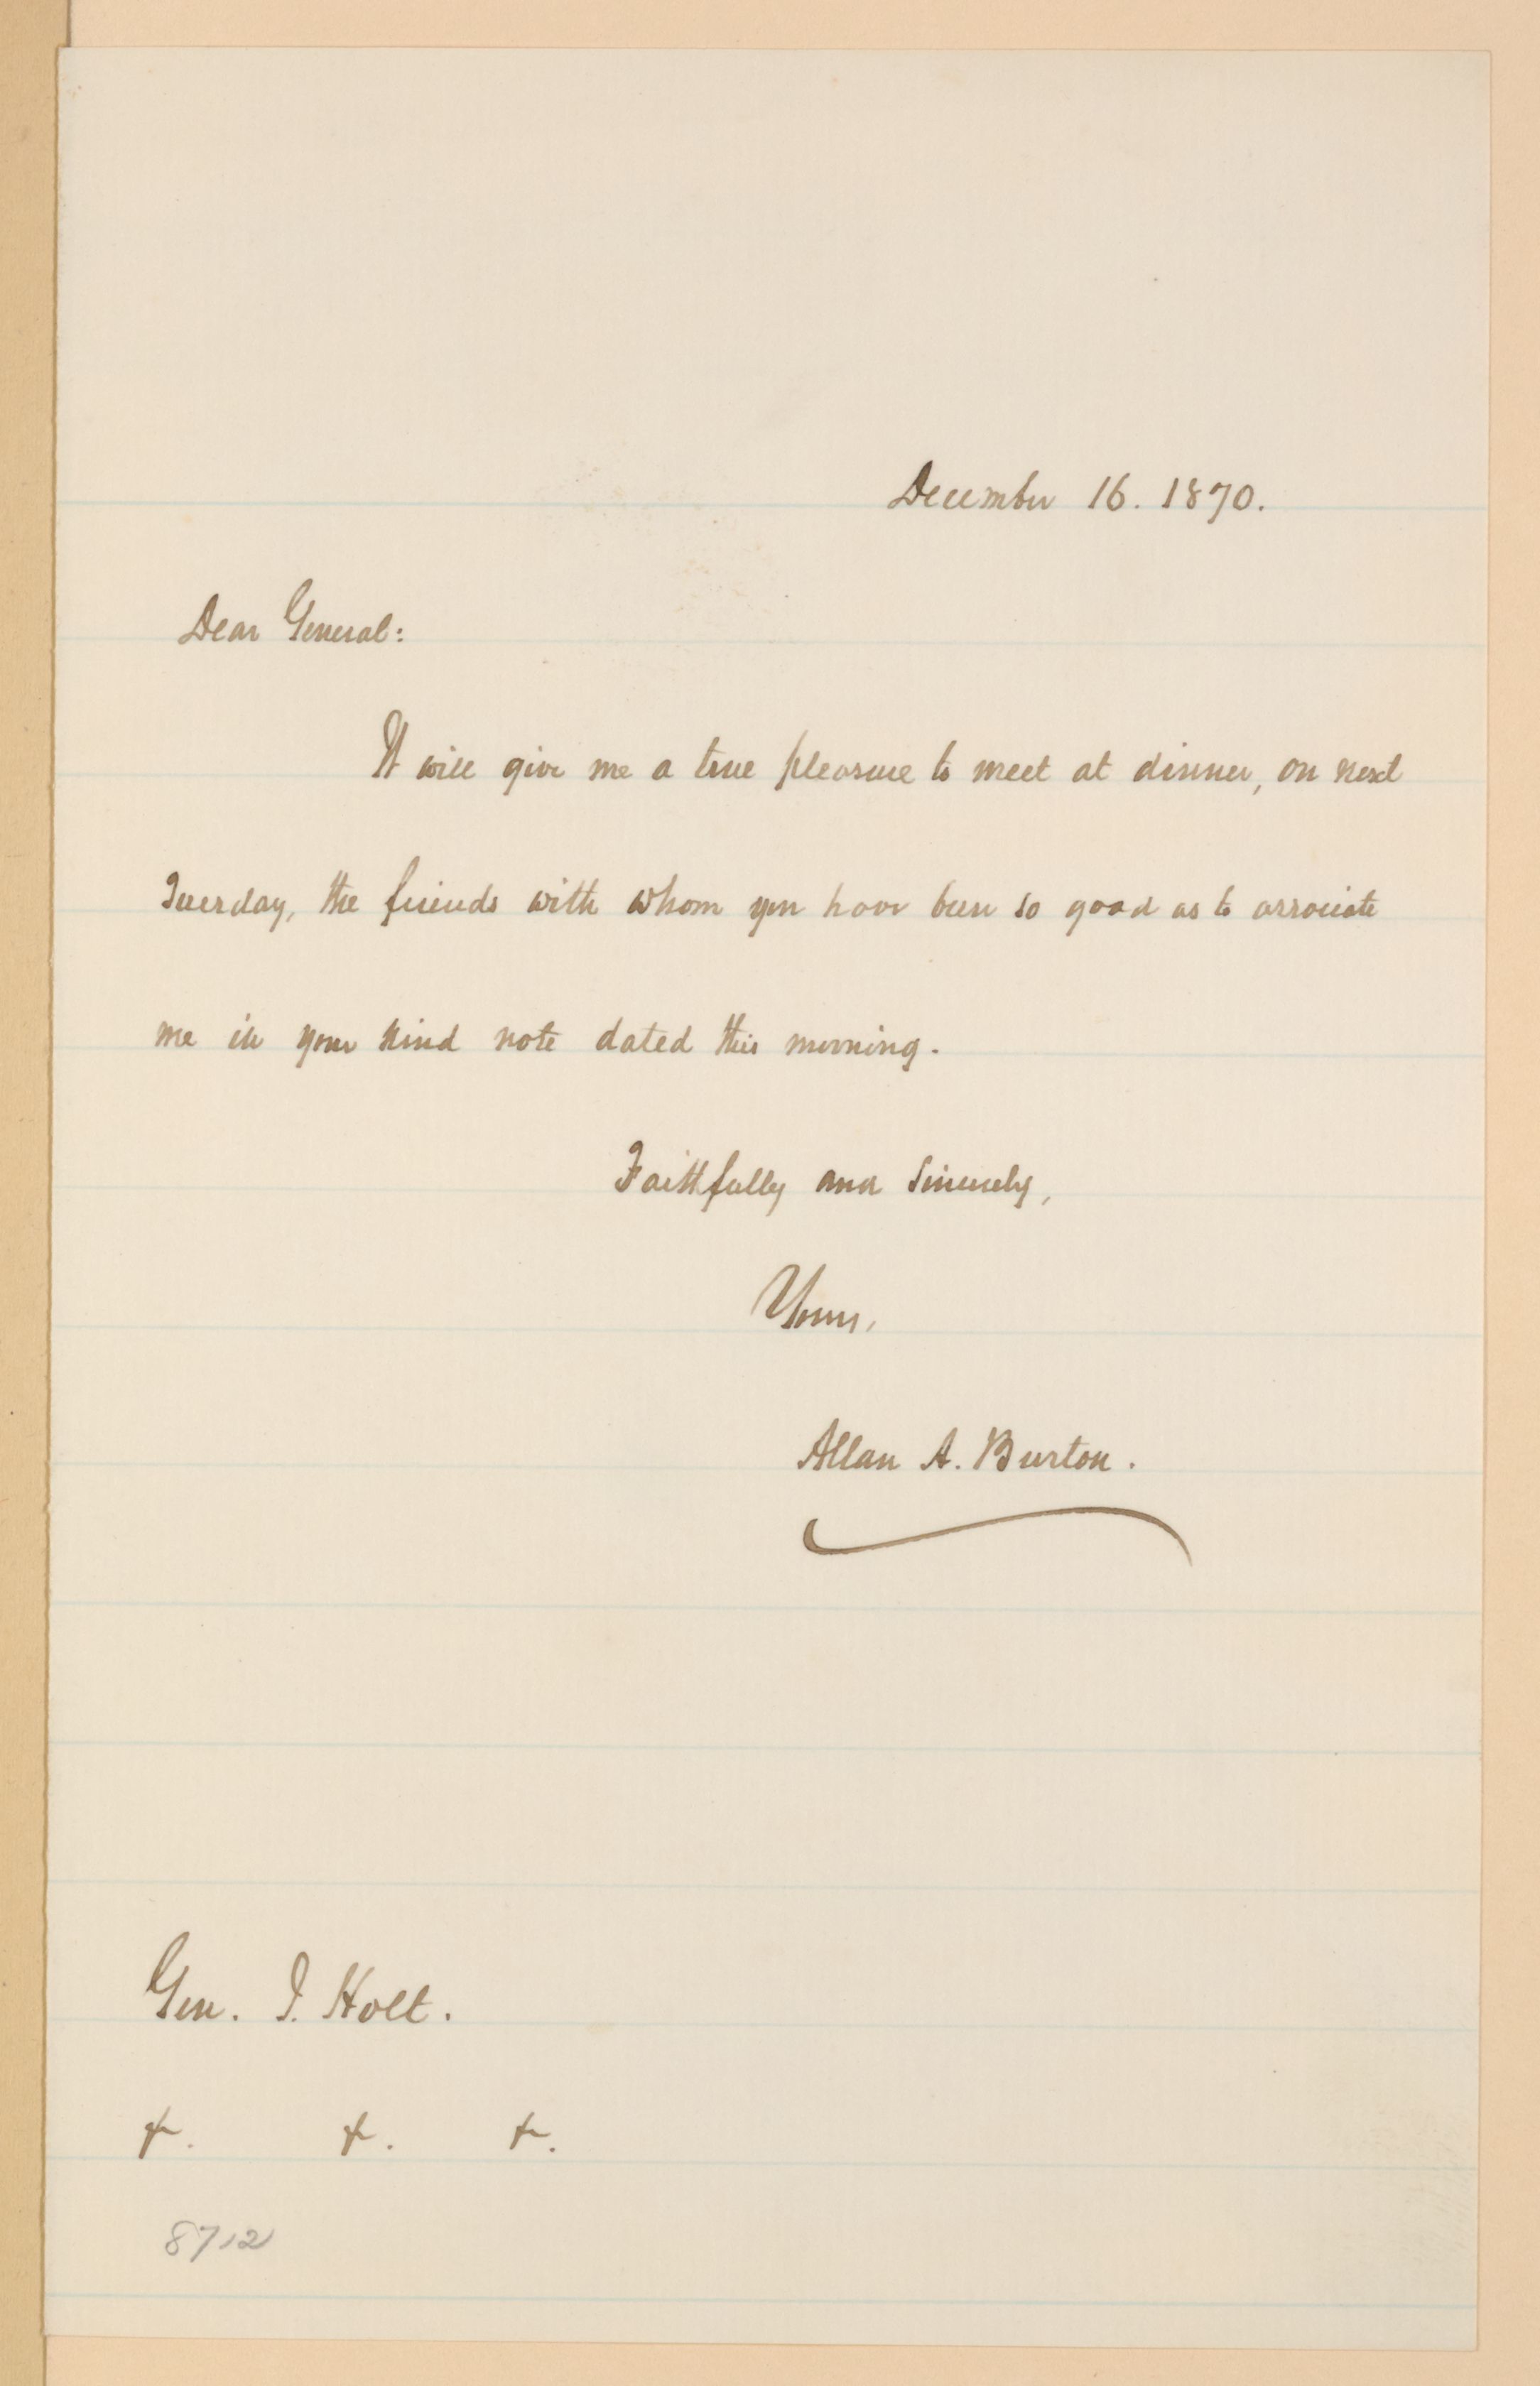 December 16. 1870.
Dear General:
It will give me a true pleasure to meet at dinner, on next
Tuesday, the friends with whom you have been so good as to associate
me in your kind note dated this morning.
Faithfully and Sincerely,
Yours,
Allan A. Burton.
Gen. J. Holt.
&. &. &.
8712